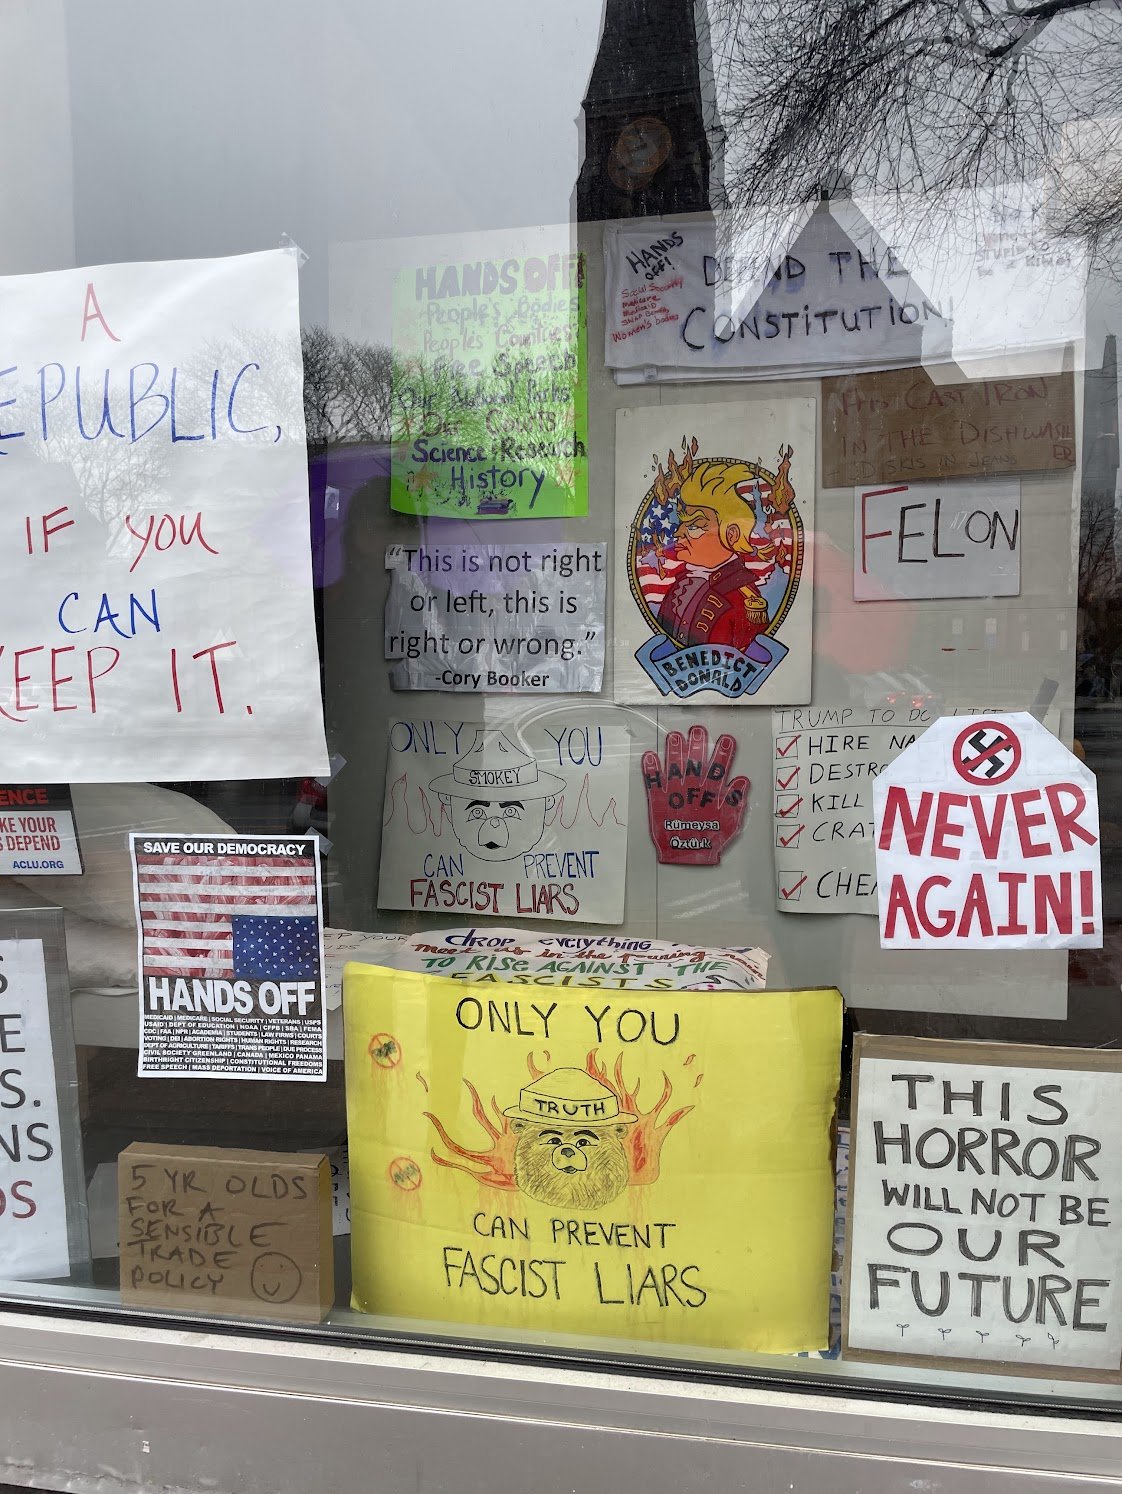 A
EPUBLIC,
IF YOU
CAN
KEEP IT.
HANDS OFF!
People's Bodies
People's Countries
Free Speech
Our National Parks
Our Courts
Science + Research
History
HANDS
OFF!
Social Security
Medicare
Medicaid
SNAP Benefits
Women's bodies
DEFEND THE
CONSTITUTION!
CAST IRON
IN THE DISHWASH
ER
SKIS IN JEANS
FELON
"This is not right
or left, this is
right or wrong."
-Cory Booker
BENEDICT
DONALD
ONLY YOU
SMOKEY
CAN PREVENT
FASCIST LIARS
HANDS
OFF
Rümeysa
Öztürk
TRUMP TO DO LIST
HIRE NA
DESTRO
KILL
CRAT
CHE
NEVER
AGAIN!
ENCE
KE YOUR
S DEPEND
ACLU.ORG
SAVE OUR DEMOCRACY
HANDS OFF
MEDICAID | MEDICARE | SOCIAL SECURITY | VETERANS | USPS
USAID | DEPT OF EDUCATION | NOAA | CFPB | SBA | FEMA
CDC | FAA | NPR | ACADEMIA | STUDENTS | LAW FIRMS | COURTS
VOTING | DEI | ABORTION RIGHTS | HUMAN RIGHTS | RESEARCH
DEPT OF AGRICULTURE | TARIFFS | TRANS PEOPLE | DUE PROCESS
CIVIL SOCIETY GREENLAND | CANADA | MEXICO PANAMA
BIRTHRIGHT CITIZENSHIP | CONSTITUTIONAL FREEDOMS
FREE SPEECH | MASS DEPORTATION | VOICE OF AMERICA
DROP everything
Meet us in the
TO RISE AGAINST THE
FASCISTS
ONLY YOU
TRUTH
CAN PREVENT
FASCIST LIARS
S
E
S.
NS
DS
5 YR OLDS
FOR A
SENSIBLE
TRADE
POLICY
THIS
HORROR
WILL NOT BE
OUR
FUTURE